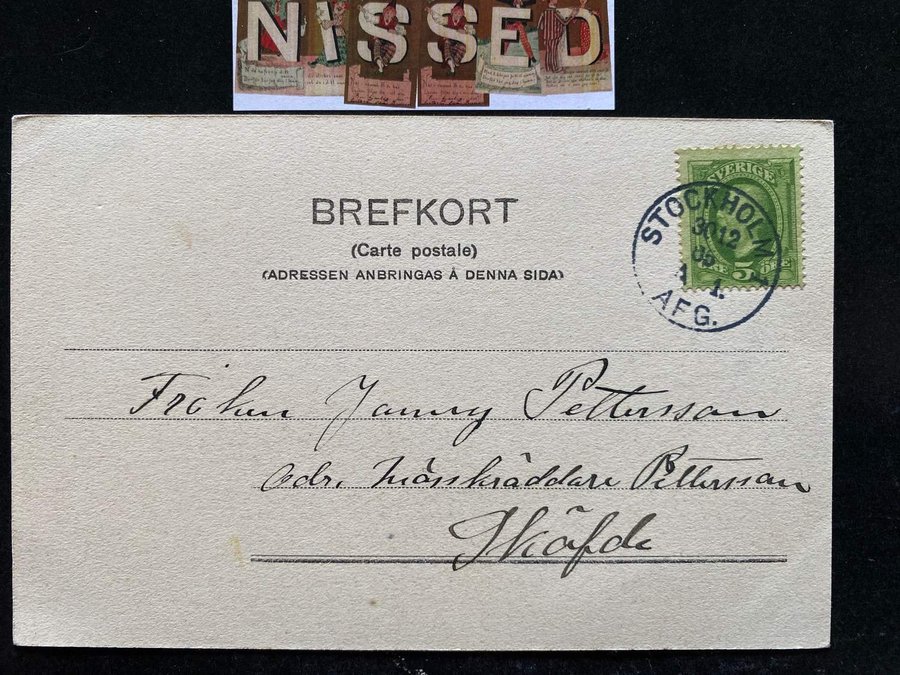 NISSED
BREFKORT
(Carte postale)
(ADRESSEN ANBRINGAS Å DENNA SIDA)
SVERIGE
5 ÖRE
STOCKHOLM 1
30 12
05
A 1.
AFG.
Fröken Jenny Pettersson
adr. Mösskräddare Pettersson
Sköfde